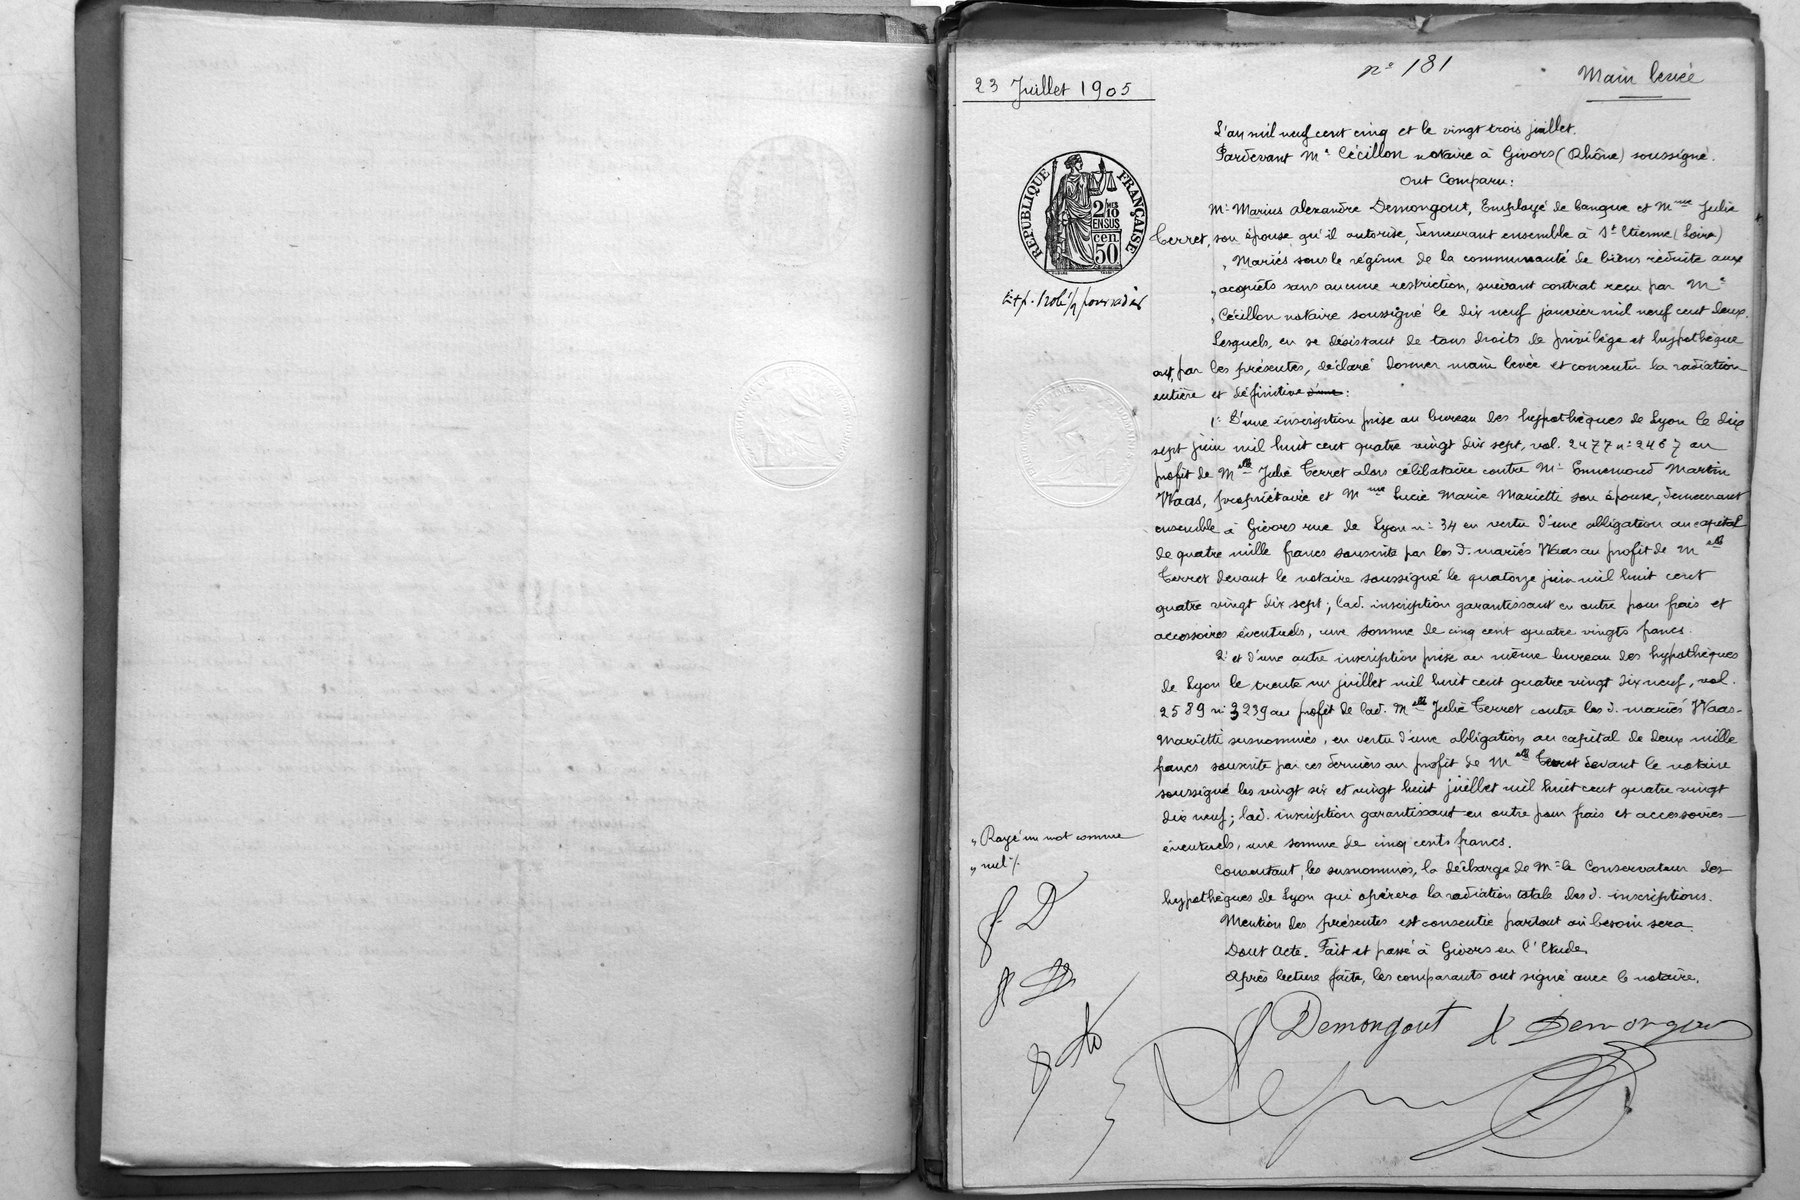 23 Juillet 1905
n° 181
Main levée
RÉPUBLIQUE FRANÇAISE
2/10 MES
EN SUS
cen. 50
L'an mil neuf cent cinq et le vingt trois juillet.
Pardevant Me Cécillon notaire à Givors (Rhône) soussigné.
Ont Comparu:
Mr Marius Alexandre Demongout, Employé de banque et Mme Julie
Terret, son épouse qu'il autorise, demeurant ensemble à St Etienne (Loire)
„ Mariés sous le régime de la communauté de biens réduite aux
„ acquêts sans aucune restriction, suivant contrat reçu par Me
„ Cécillon notaire soussigné le dix neuf janvier mil neuf cent deux.
Lesquels, en se désistant de tous droits de privilège et hypothèque
ont, par les présentes, déclaré donner main levée et consentir la radiation
entière et définitive d'une:
1° D'une inscription prise au bureau des hypothèques de Lyon le dix
sept juin mil huit cent quatre vingt dix sept, vol. 2477 n° 2467 au
profit de Melle Julie Terret alors célibataire contre Mr Ennemond Martin
Waas, propriétaire et Mme Lucie Marie Marietti son épouse, demeurant
ensemble à Givors rue de Lyon n° 34 en vertu d'une obligation au capital
de quatre mille francs souscrite par les d. mariés Waas au profit de Melle
Terret devant le notaire soussigné le quatorze juin mil huit cent
quatre vingt dix sept; lad. inscription garantissant en outre pour frais et
accessoires éventuels, une somme de cinq cent quatre vingts francs.
2° et d'une autre inscription prise au même bureau des hypothèques
de Lyon le trente un juillet mil huit cent quatre vingt dix neuf, vol.
2589 n° 3239 au profit de lad. Melle Julie Terret contre les d. mariés Waas-
Marietti susnommés, en vertu d'une obligation au capital de deux mille
francs souscrite par ces derniers au profit de Melle Terret devant le notaire
soussigné les vingt six et vingt huit juillet mil huit cent quatre vingt
dix neuf; lad. inscription garantissant en outre pour frais et accessoires
éventuels, une somme de cinq cents francs.
Consentant, les susnommés, la décharge de Mr le Conservateur des
hypothèques de Lyon qui opérera la radiation totale des d. inscriptions.
Mention des présentes est consentie partout où besoin sera.
Dont Acte. Fait et passé à Givors en l'Etude
Après lecture faite, les comparants ont signé avec le notaire.
„ Rayé un mot comme
„ nul
J D
Demongout
J Demongout